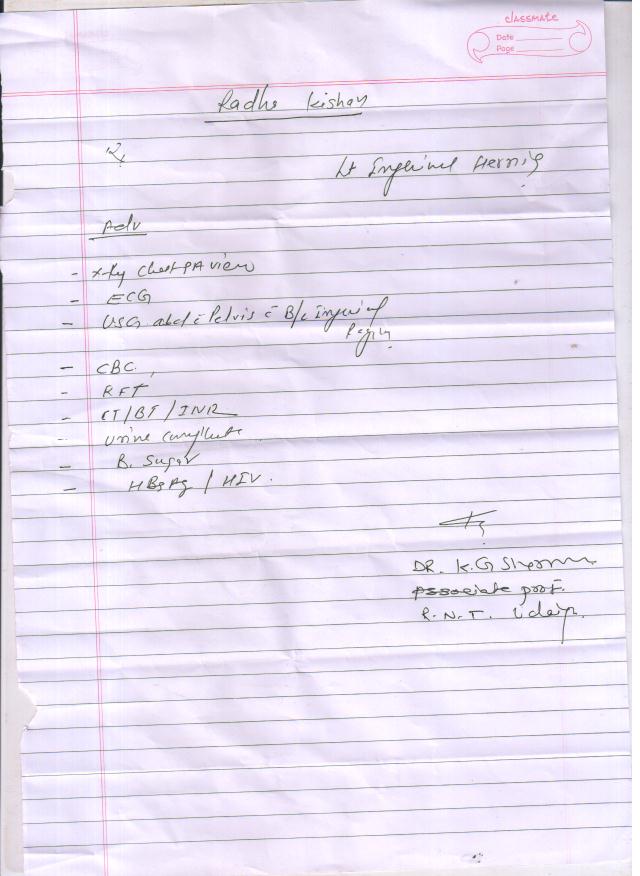 classmate
Date
Page
Radhe Kishan
Rx
Lt Inguinal Hernia
Adv
- X-Ray Chest PA view
- ECG
- USG abd c̄ Pelvis c̄ B/L Inguinal
Region
- CBC,
- RFT
- CT/BT/INR
- Urine complete
- B. Sugar
- HBsAg / HIV.
DR. K.G Sharma
Associate prof.
R.N.T. Udaipur